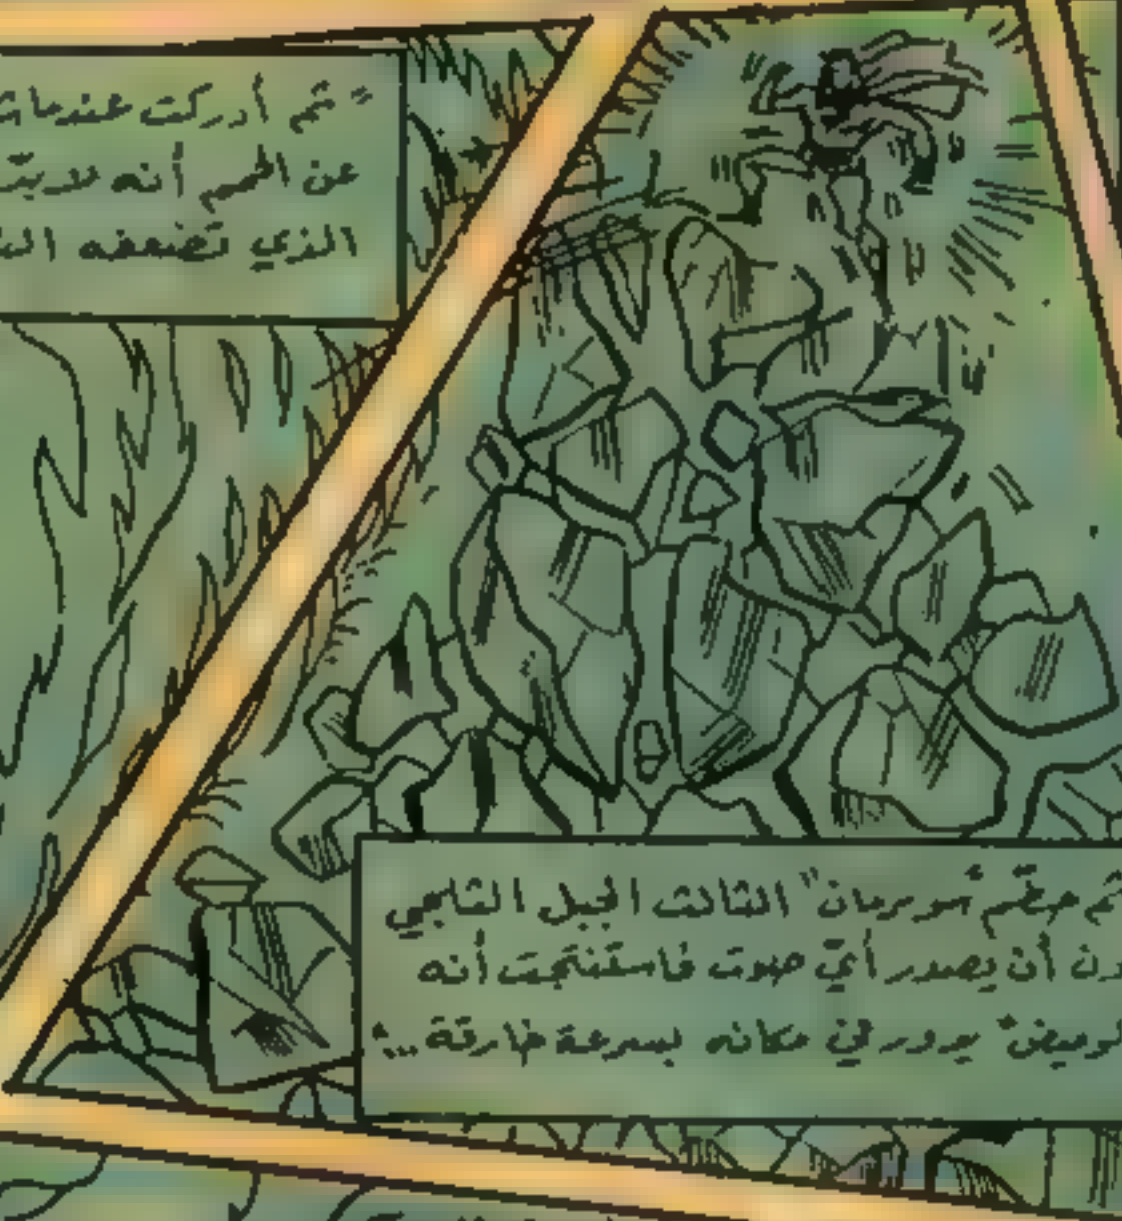 " ثم أدركت عندما
عن الجسم أنه
الذي تضعفه
ثم حطّم "سوبرمان" الثالث الجبل الثلجي
دون أن يصدر أيّ صوت فاستنتجت أنه
يدور في مكانه بسرعة خارقة..."